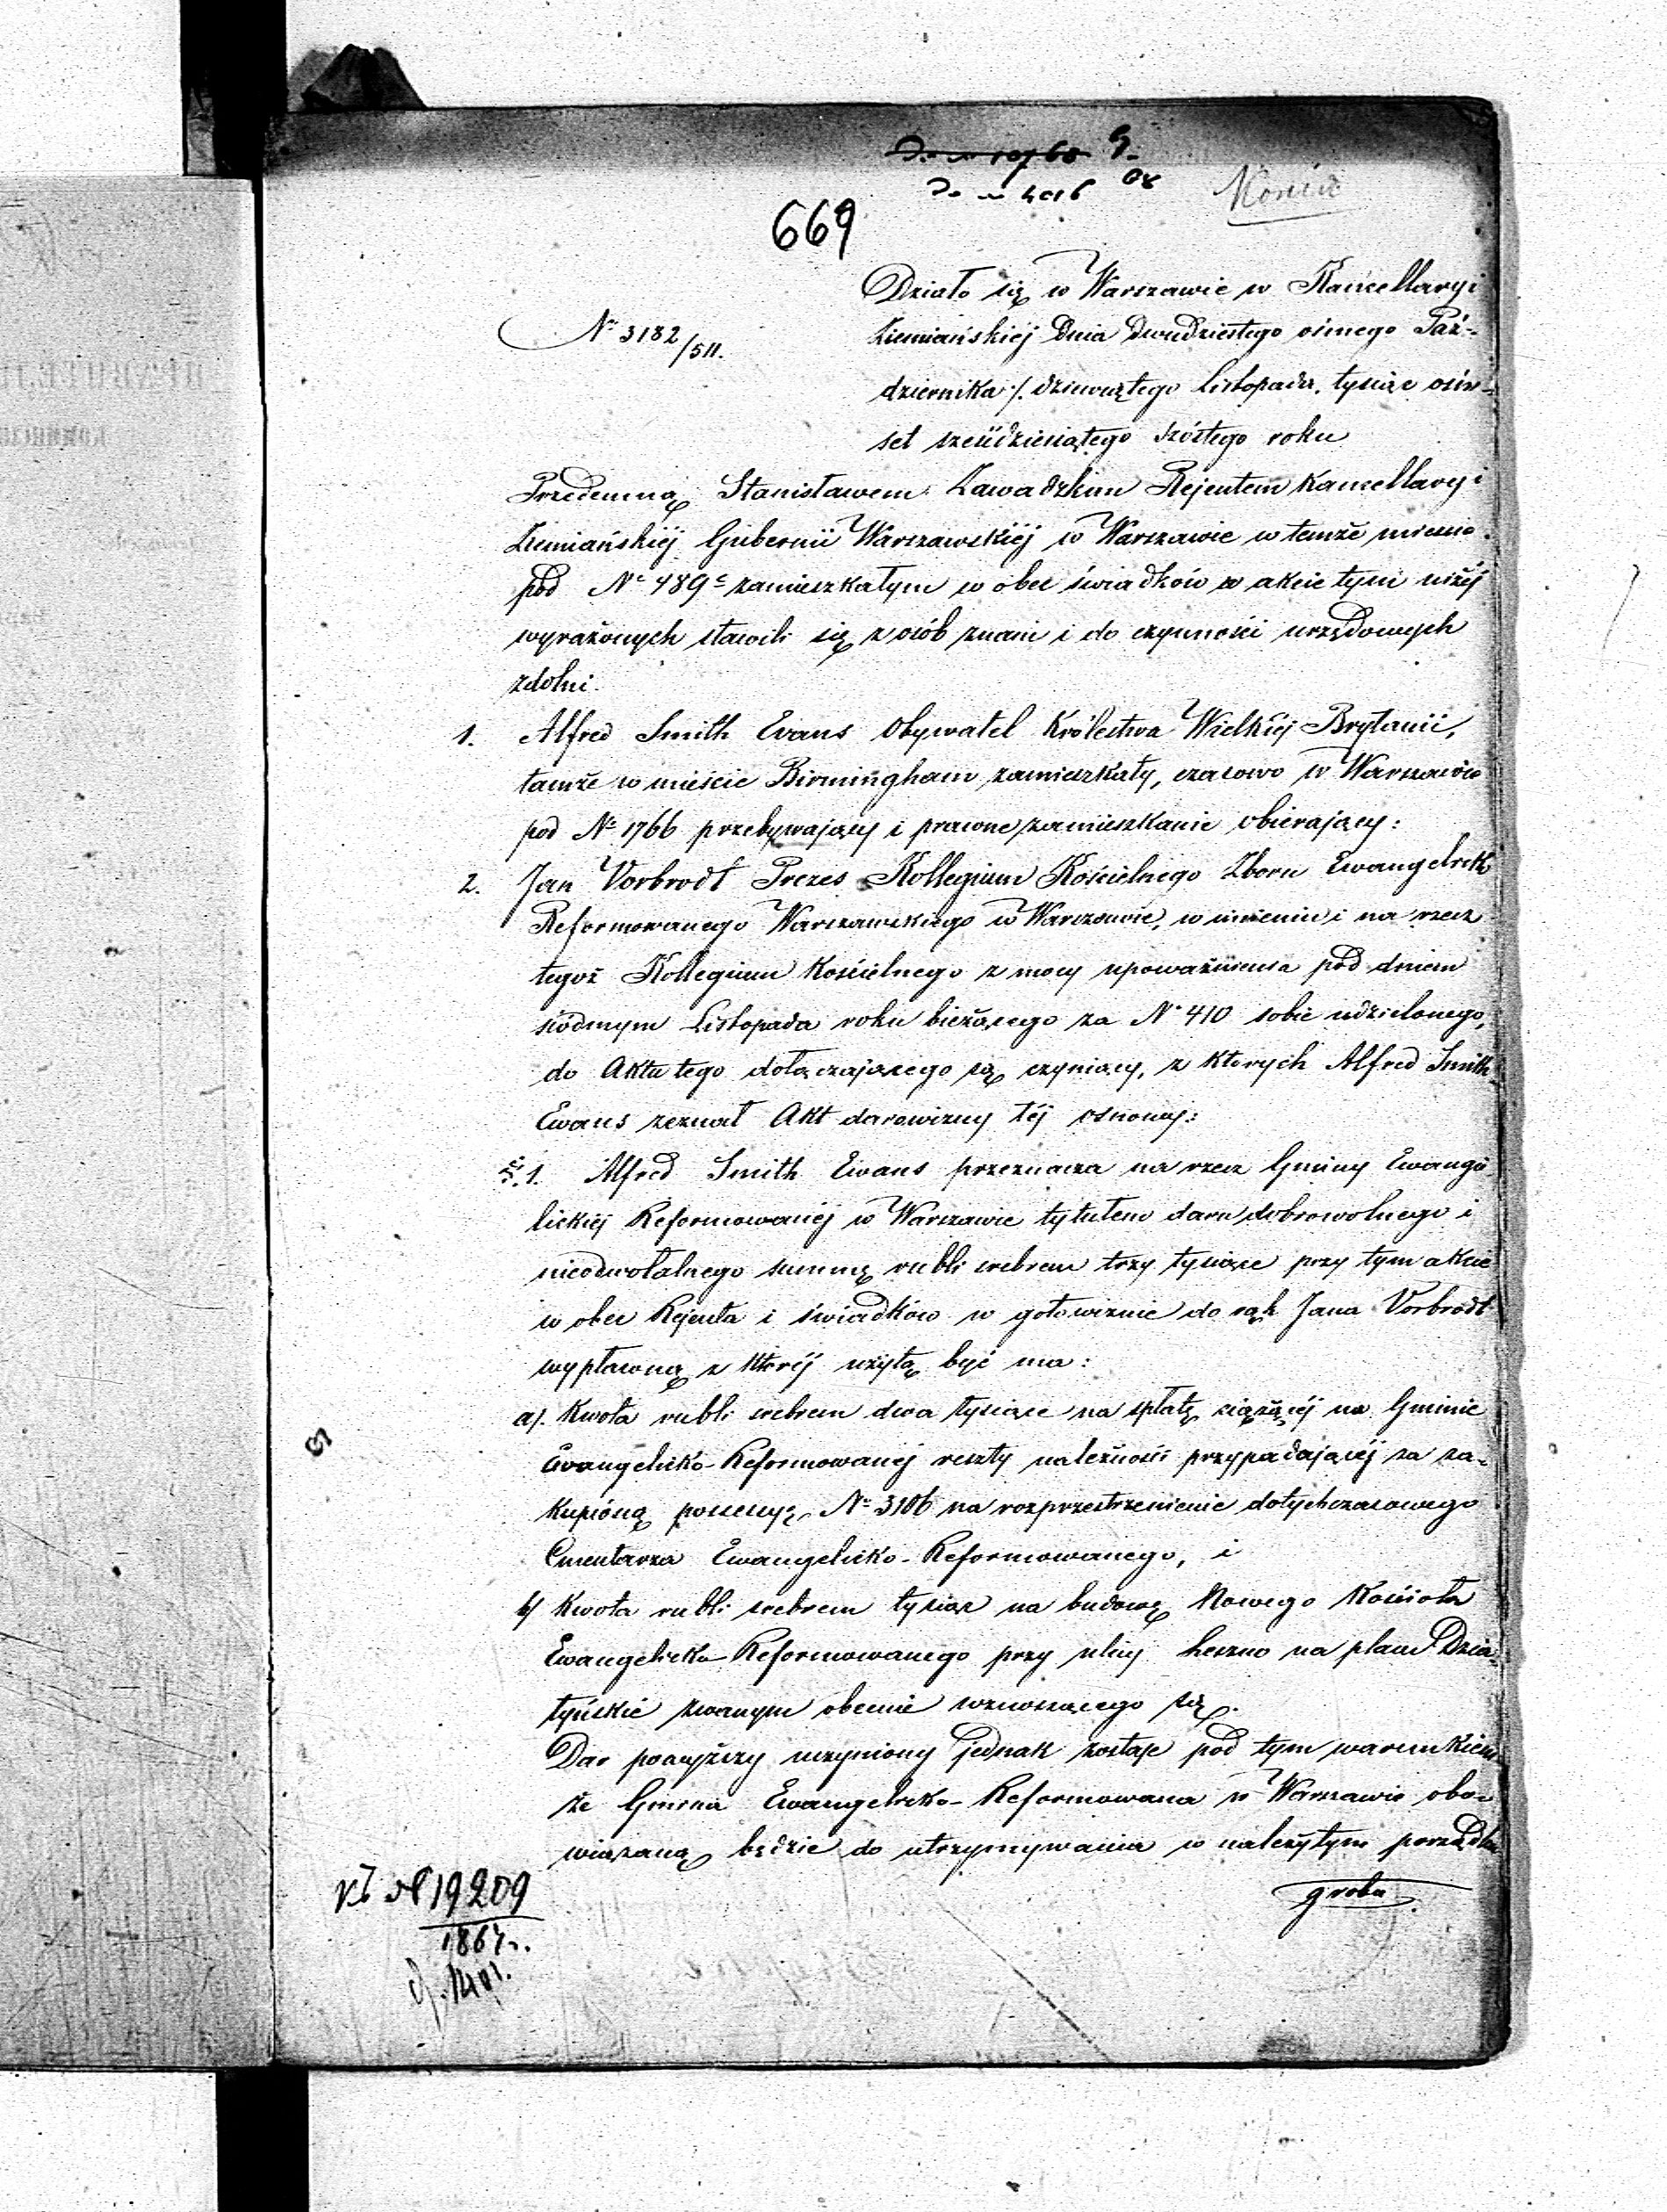 669
Działo się w Warszawie w Kancellaryi
Nr 3182/511.
Ziemiańskiej Dnia dwudziestego ósmego Paź-
dziernika /. dziewiątego Listopada. tysiąc ośm-
set sześćdziesiątego szóstego roku
Przedemną Stanisławem Zawadzkim Rejentem Kancellaryi
Ziemiańskiéj Gubernii Warszawskiéj w Warszawie w temże mieście
pod Nr 489c zamieszkałym w obec świadków w akcie tym niżéj
wyrażonych stawili się z osób znani i do czynności urzędowych
zdolni.
1. Alfred Smith Evans Obywatel Królestwa Wielkiéj Brytanii,
tamże w mieście Birmingham zamieszkały, czasowo w Warszawie
pod Nr 1766 przebywający i prawne zamieszkanie obierający:
2. Jan Vorbrodt Prezes Kollegium Kościelnego Zboru Ewangelick
Reformowanego Warszawskiego w Warszawie, w imieniu i na rzecz
tegoż Kollegium Kościelnego z mocy upoważnienia pod dniem
siódmym Listopada roku bieżącego za Nr 410 sobie udzielonego,
do Aktu tego dołączającego się czyniący, z których Alfred Smith
Ewans zeznał Akt darowizny téj osnowy:
§. 1. Alfred Smith Ewans przeznacza na rzecz Gminy Ewange-
lickiéj Reformowanéj w Warszawie tytułem daru dobrowolnego i
nieodwołalnego summę rubli srebrem trzy tysiące przy tym akcie
w obec Rejenta i świadków w gotowiznie do rąk Jana Vorbrodt
wypłaconą z któréj użytą być ma:
a). Kwota rubli srebrem dwa tysiące na spłatę ciążącéj na Gminie
Ewangelicko-Reformowanéj reszty należności przypadającéj za za-
kupioną possessyę Nr 3106 na rozprzestrzenienie dotychczasowego
Cmentarza Ewangelicko-Reformowanego, i
b) Kwota rubli srebrem tysiąc na budowę Nowego Kościoła
Ewangelicko-Reformowanego przy ulicy Leszno na placu Dzia-
łyńskie zwanym obecnie wznoszącego się.
Dar powyższy uczyniony jednak zostaje pod tym warunkiem
że Gmina Ewangelicko-Reformowana w Warszawie obo-
wiązaną będzie do utrzymywania w należytym porządku
grobu
Kъ № 19209
1867 г.